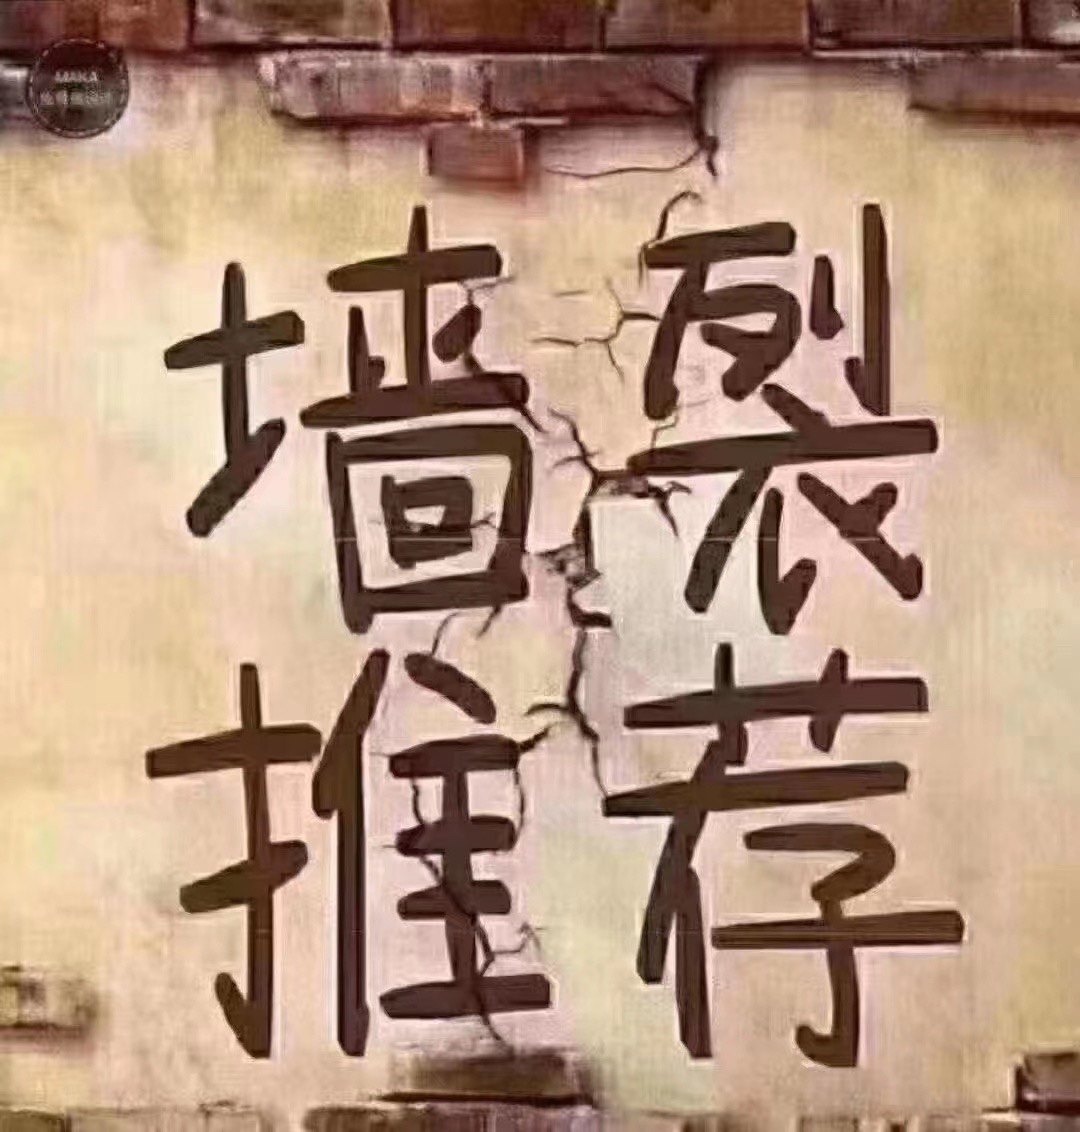 MAKA
墙裂
推荐